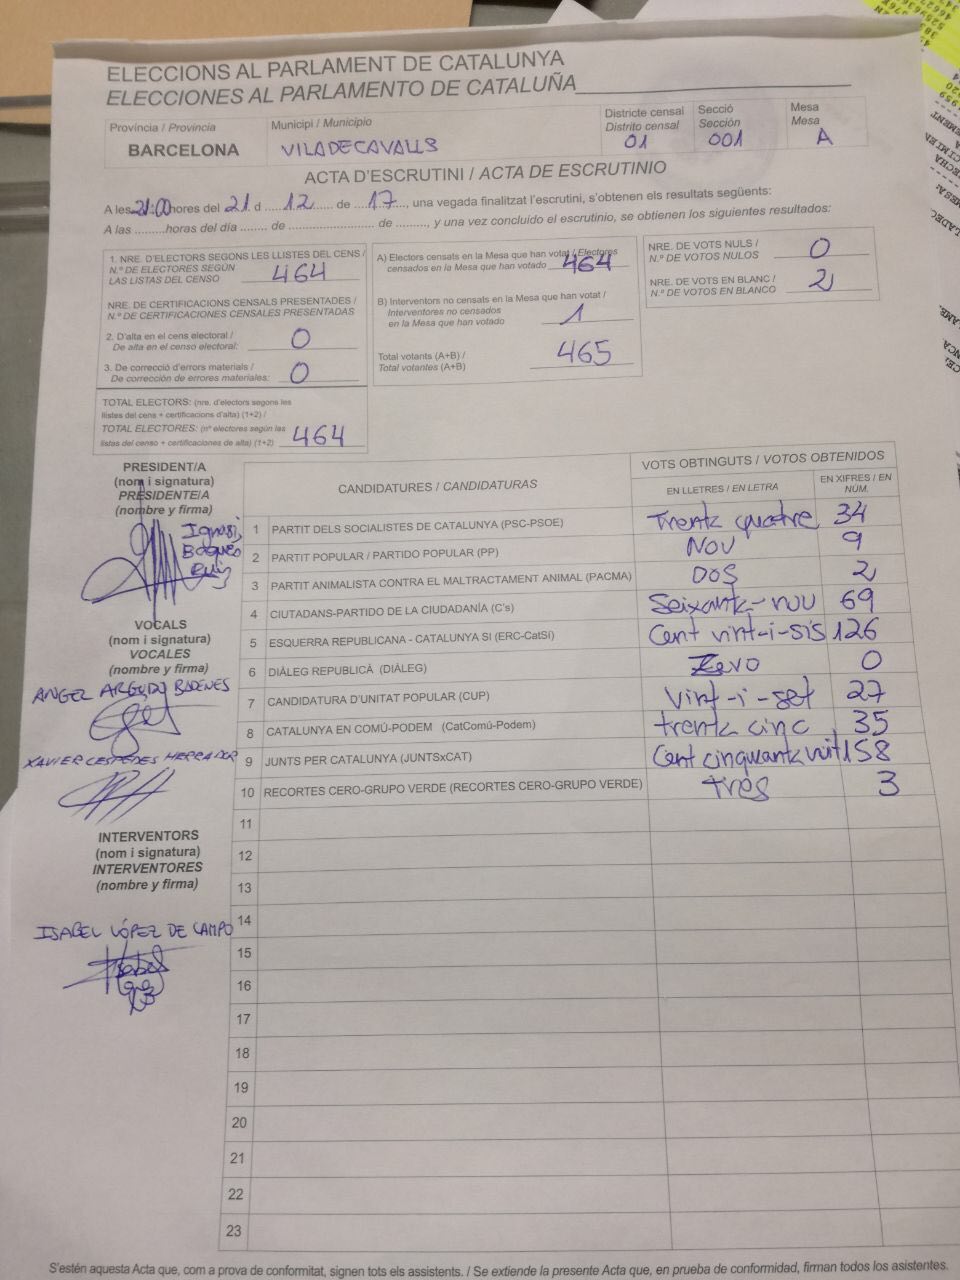 ELECCIONS AL PARLAMENT DE CATALUNYA
ELECCIONES AL PARLAMENTO DE CATALUÑA
Província / Provincia
BARCELONA
Municipi / Municipio
VILADECAVALLS
Districte censal
Distrito censal
01
Secció
Sección
001
Mesa
Mesa
A
ACTA D'ESCRUTINI / ACTA DE ESCRUTINIO
A les 21:00 hores del 21 d 12 de 17, una vegada finalitzat l'escrutini, s'obtenen els resultats següents:
A las .........horas del día ........ de ........................... de ........., y una vez concluido el escrutinio, se obtienen los siguientes resultados:
1. NRE. D'ELECTORS SEGONS LES LLISTES DEL CENS /
N.º DE ELECTORES SEGÚN
LAS LISTAS DEL CENSO 464
NRE. DE CERTIFICACIONS CENSALS PRESENTADES /
N.º DE CERTIFICACIONES CENSALES PRESENTADAS
2. D'alta en el cens electoral /
De alta en el censo electoral: 0
3. De correcció d'errors materials /
De corrección de errores materiales: 0
TOTAL ELECTORS: (nre. d'electors segons les
llistes del cens + certificacions d'alta) (1+2) /
TOTAL ELECTORES: (nº electores según las
listas del censo + certificaciones de alta) (1+2) 464
A) Electors censats en la Mesa que han votat / Electores
censados en la Mesa que han votado 464
B) Interventors no censats en la Mesa que han votat /
Interventores no censados
en la Mesa que han votado 1
Total votants (A+B) /
Total votantes (A+B) 465
NRE. DE VOTS NULS /
N.º DE VOTOS NULOS 0
NRE. DE VOTS EN BLANC /
N.º DE VOTOS EN BLANCO 2
PRESIDENT/A
(nom i signatura)
PRESIDENTE/A
(nombre y firma)
Ignasi
VOCALS
(nom i signatura)
VOCALES
(nombre y firma)
ANGEL ARGUDO BADENES
XAVIER CESPEDES HERRADOR
INTERVENTORS
(nom i signatura)
INTERVENTORES
(nombre y firma)
ISABEL LÓPEZ DE CAMPO
CANDIDATURES / CANDIDATURAS
VOTS OBTINGUTS / VOTOS OBTENIDOS
EN LLETRES / EN LETRA
EN XIFRES / EN
NÚM.
1 PARTIT DELS SOCIALISTES DE CATALUNYA (PSC-PSOE) Trenta quatre 34
2 PARTIT POPULAR / PARTIDO POPULAR (PP) NOU 9
3 PARTIT ANIMALISTA CONTRA EL MALTRACTAMENT ANIMAL (PACMA) DOS 2
4 CIUTADANS-PARTIDO DE LA CIUDADANÍA (C's) Seixanta-nou 69
5 ESQUERRA REPUBLICANA - CATALUNYA SI (ERC-CatSí) Cent vint-i-sis 126
6 DIÀLEG REPUBLICÀ (DIÀLEG) Zero 0
7 CANDIDATURA D'UNITAT POPULAR (CUP) Vint-i-set 27
8 CATALUNYA EN COMÚ-PODEM (CatComú-Podem) trenta cinc 35
9 JUNTS PER CATALUNYA (JUNTSxCAT) Cent cinquanta vuit 158
10 RECORTES CERO-GRUPO VERDE (RECORTES CERO-GRUPO VERDE) tres 3
11
12
13
14
15
16
17
18
19
20
21
22
23
S'estén aquesta Acta que, com a prova de conformitat, signen tots els assistents. / Se extiende la presente Acta que, en prueba de conformidad, firman todos los asistentes.